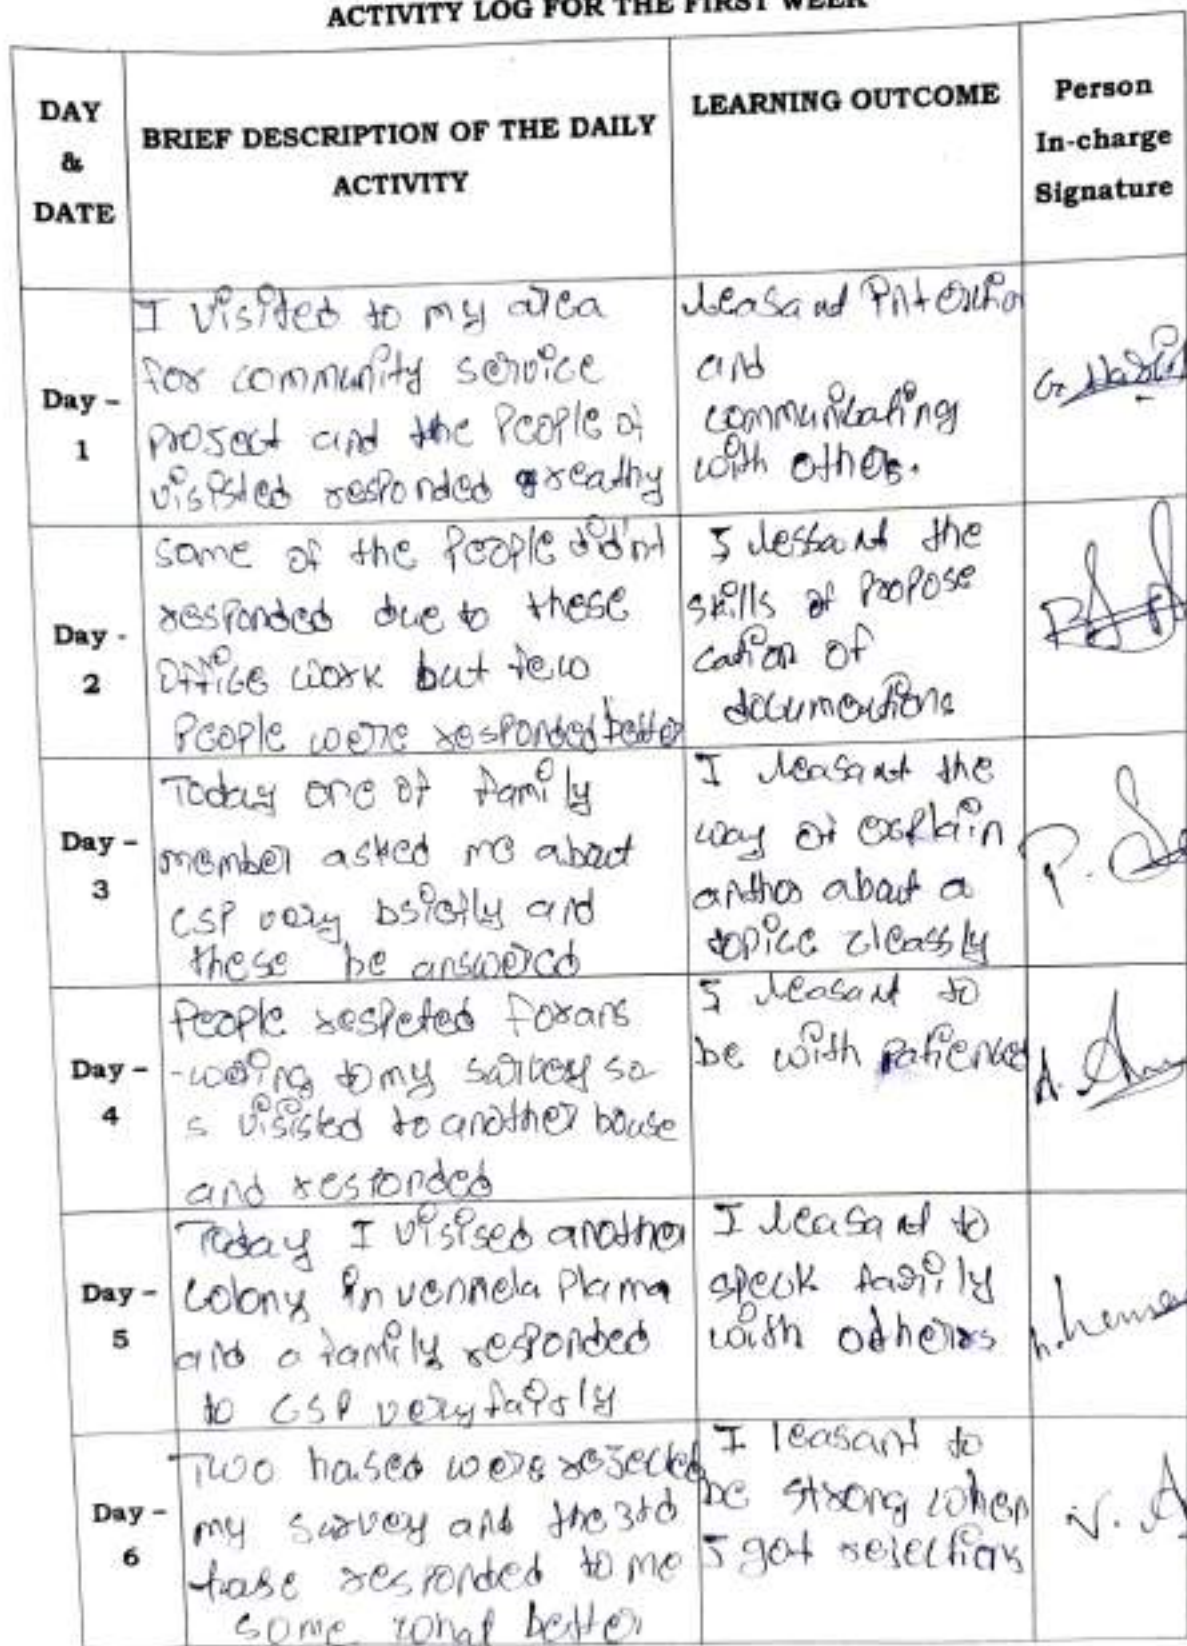 ACTIVITY LOG FOR THE FIRST WEEK
DAY
&
DATE
BRIEF DESCRIPTION OF THE DAILY
ACTIVITY
LEARNING OUTCOME
Person
In-charge
Signature
Day -
1
I visited to my area
for community service
project and the People of
visisted responded greathy
leasant
and
communicating
with others.
Day -
2
some of the People didn't
responded due to these
office work but few
People were responded better
I lessant the
skills of
of
documentions
Day -
3
Today one of family
member asked me about
CSP very bsiefly and
these be answered
I leasant the
way of explain
about a
topice cleassly
P.
Day -
4
People
to my survey so
s visisted to another house
and responded
I leasant to
be with patienced
A.
Day -
5
Today I visised another
Colony in vennela Plama
and a family responded
to CSP very faisly
I leasant to
speak faisily
with others
Day -
6
Two hased were rejected
my survey and the 3rd
hase responded to me
some what better
I leasant to
be strong when
I got rejections